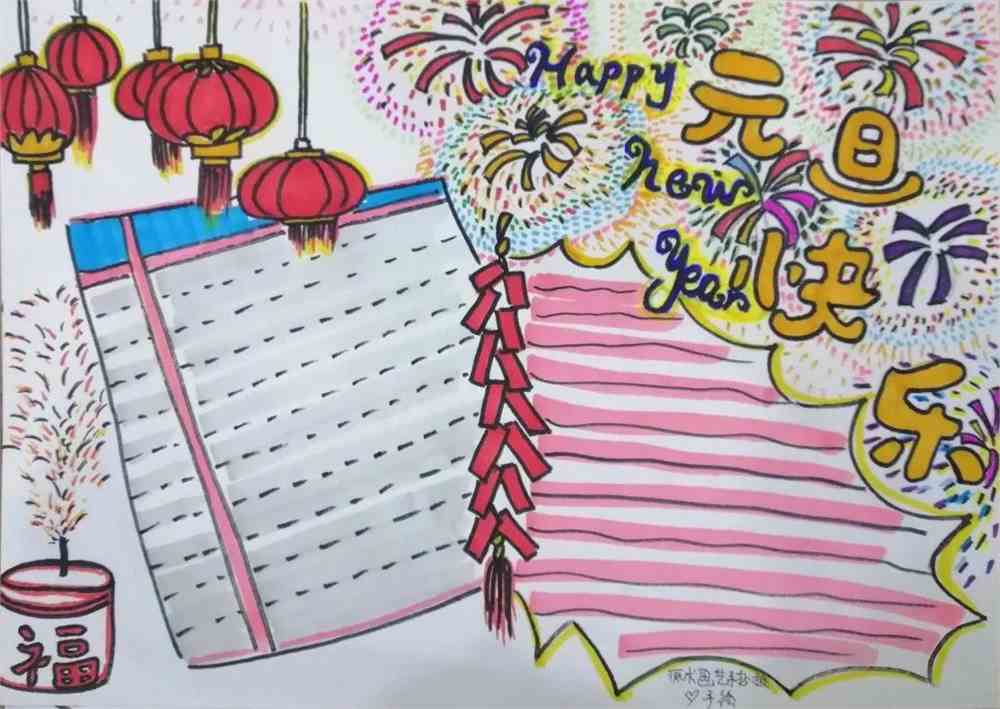 Happy
New
Year
元旦
快
乐
福